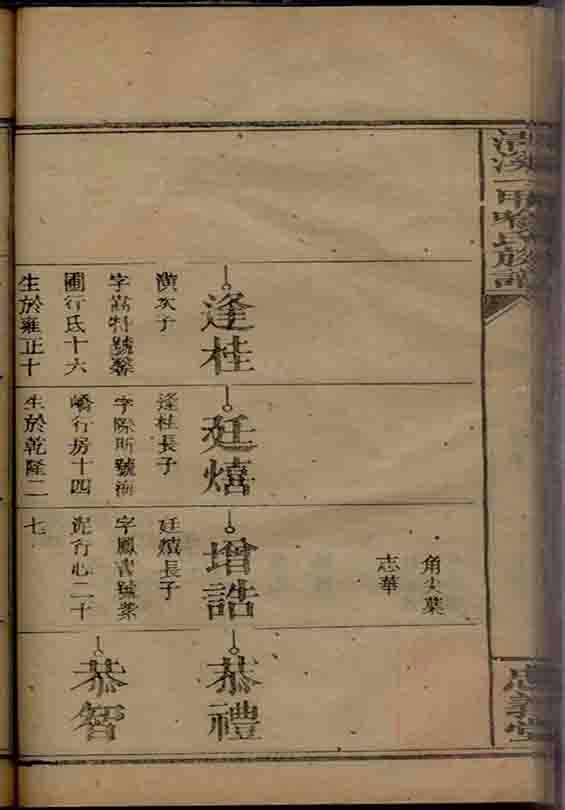 溪一甲氏族譜
忠義堂
逢桂
次子
字嵩特號馨
圃行氏十六
生於雍正十
廷熺
逢桂長子
字際斯號海
嶠行房十四
生於乾隆二
角尖葉
志華
增誥
廷熺長子
字鳳書號紫
泥行心二十
七
恭禮
恭智